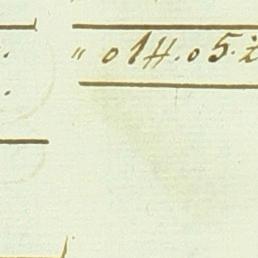 " 01H.05.